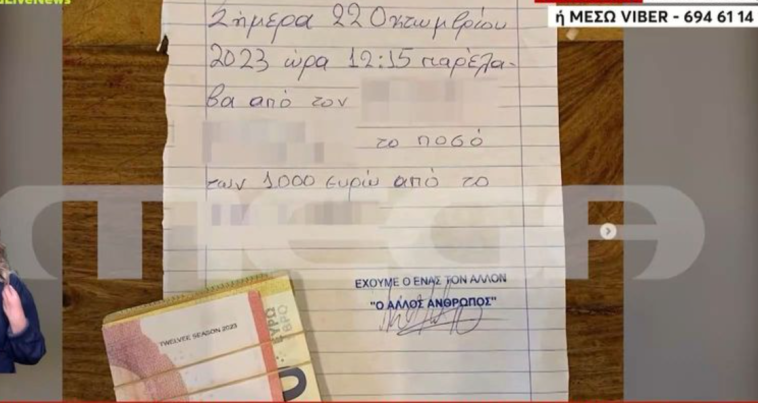 LiveNews
ή ΜΕΣΩ VIBER - 694 61 14
Σήμερα 22 Οκτωμβρίου
2023 ώρα 12:15 παρέλα-
βα από τον
το ποσό
των 1.000 ευρώ από το
MEGA
ΕΧΟΥΜΕ Ο ΕΝΑΣ ΤΟΝ ΑΛΛΟΝ
"Ο ΑΛΛΟΣ ΑΝΘΡΩΠΟΣ"
TWELVEE SEASON 2023
ΕΥΡΩ